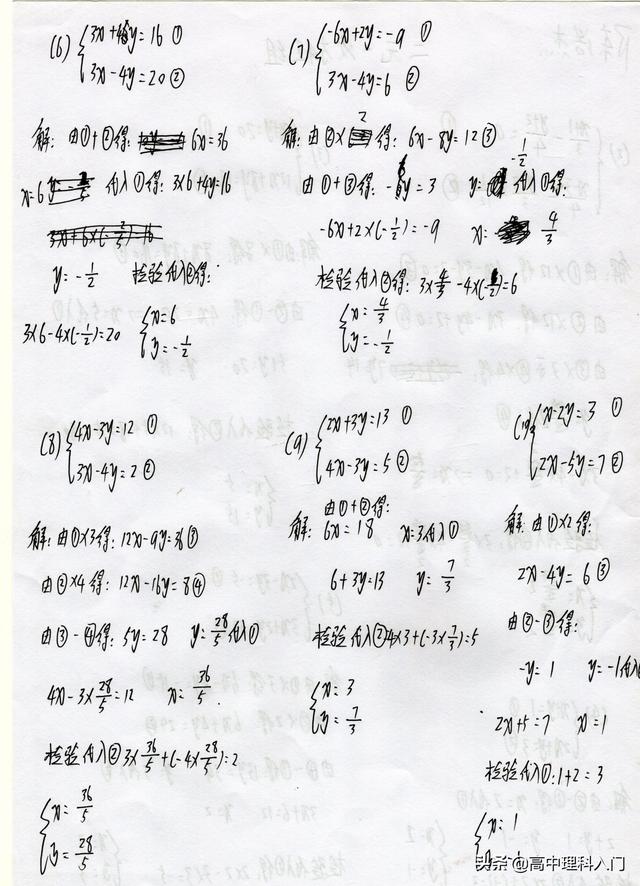 (6) { 3x+4y=16 ①
3x-4y=20 ②
解: 由①+②得: 6x=36
x=6 代入①得: 3×6+4y=16
y=-1/2 检验代入②得:
3×6-4×(-1/2)=20 { x=6
y=-1/2
(7) { -6x+2y=-9 ①
3x-4y=6 ②
解: 由②×2得: 6x-8y=12 ③
由①+③得: -6y=3 y=-1/2 代入①得:
-6x+2×(-1/2)=-9 x=4/3
检验代入②得: 3×4/3-4×(-1/2)=6
{ x=4/3
y=-1/2
(8) { 4x-3y=12 ①
3x-4y=2 ②
解: 由①×3得: 12x-9y=36 ③
由②×4得: 12x-16y=8 ④
由③-④得: 5y=28 y=28/5 代入①
4x-3×28/5=12 x=36/5
检验代入② 3×36/5+(-4×28/5)=2
{ x=36/5
y=28/5
(9) { 2x+3y=13 ①
4x-3y=5 ②
由①+②得:
解: 6x=18 x=3代入①
6+3y=13 y=7/3
检验代入② 4×3+(-3×7/3)=5
{ x=3
y=7/3
(10) { x-2y=3 ①
2x-5y=7 ②
解: 由①×2得:
2x-4y=6 ③
由②-③得:
-y=1 y=-1代入
2x+5=7 x=1
检验代入①: 1+2=3
{ x=1
头条@高中理科入门